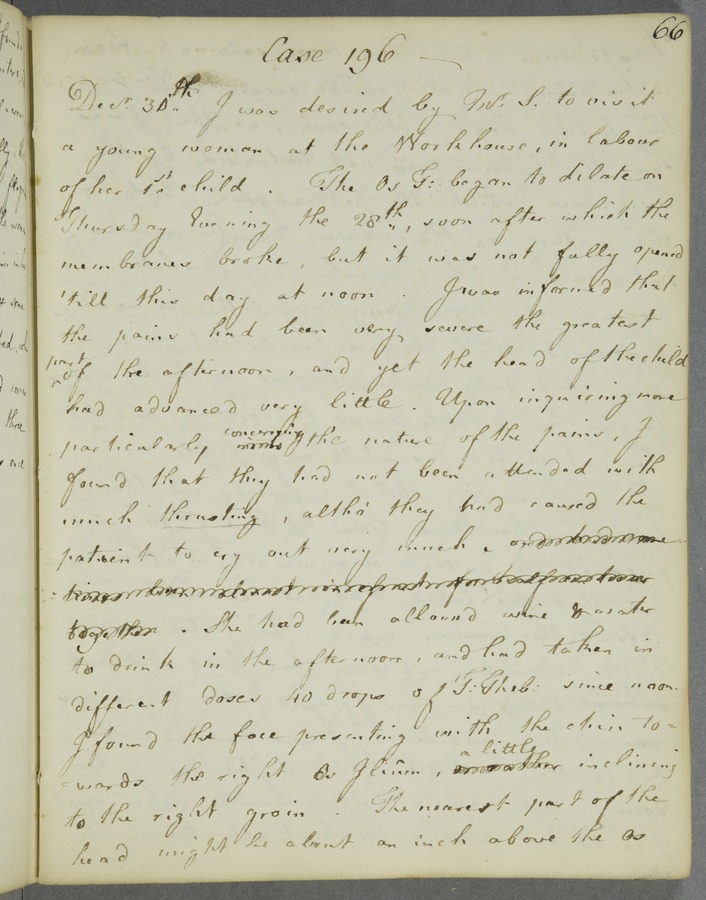 66
Case 196 —
Decr. 30th I was desired by Mr. S. to visit
a young woman at the Workhouse, in labour
of her 1st child. The Os T: began to dilate on
Thursday Evening the 28th, soon after which the
membranes broke, but it was not fully opened
'till this day at noon. I was informed that
the pains had been very severe the greatest
part of the afternoon, and yet the head of the child
had advanced very little. Upon inquiring more
particularly concerning the nature of the pains, I
found that they had not been attended with
much thrusting, altho' they had caused the
patient to cry out very much,
together. She had been allowed wine & water
to drink in the afternoon, and had taken in
different doses 40 drops of T: Theb: since noon.
I found the face presenting with the chin to=
=wards the right Os Ilium, a little inclining
to the right groin. The nearest part of the
head might be about an inch above the Os